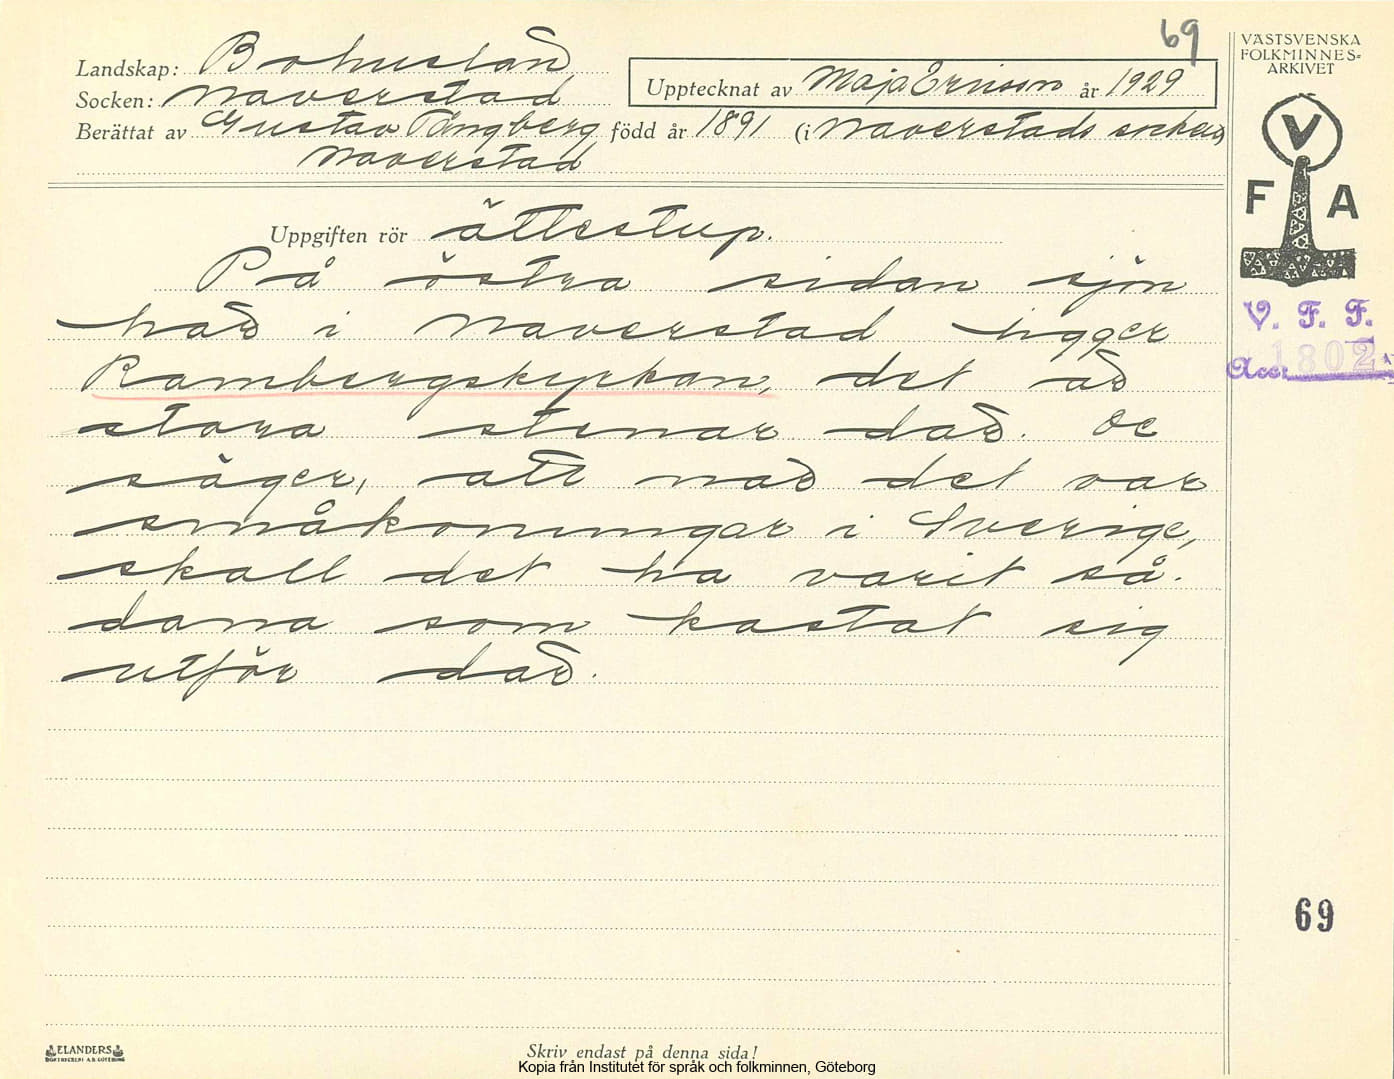 69
VÄSTSVENSKA
FOLKMINNES=
ARKIVET
Landskap: Bohuslän
Socken: Naverstad
Upptecknat av Maja Ericson år 1929
Berättat av Gustav född år 1891 (i Naverstads socken)
Naverstad
V
F A
Uppgiften rör ättestup.
På östra sidan sjön
här i Naverstad ligger
Rambergskyrkan, det är
stora stenar där. De
säger, att när det var
småkonungar i Sverige,
skall det ha varit så-
dana som kastat sig
utför där.
V. F. F.
Acc. 1802
69
ELANDERS
BOKTRYCKERI A.B. GÖTEBORG
Skriv endast på denna sida!
Kopia från Institutet för språk och folkminnen, Göteborg